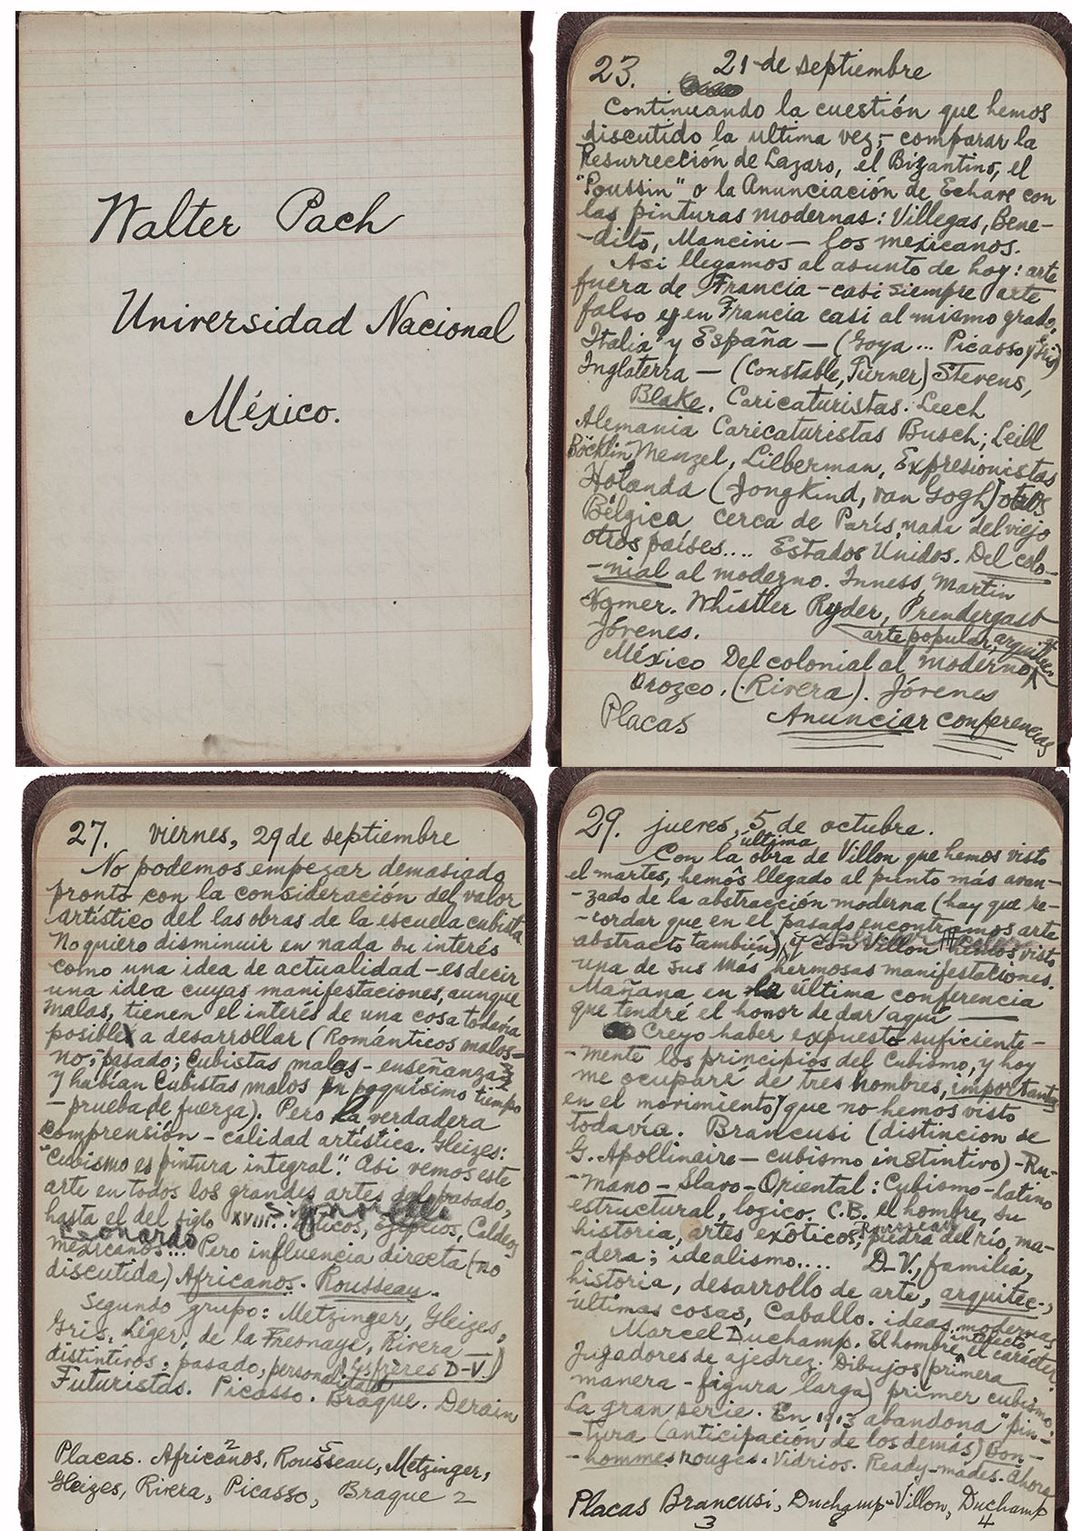 Walter Pach
Universidad Nacional
México.
23. 21 de septiembre
Continuando la cuestión que hemos
discutido la ultima vez, - comparar la
Resurrección de Lazaro, el Bizantino, el
"Poussin" o la Anunciación de Echave con
las pinturas modernas: Villegas, Bene-
-dito, Mancini - los mexicanos.
Asi llegamos al asunto de hoy: arte
fuera de Francia - casi siempre arte
falso y en Francia casi al mismo grado.
Italia y España - (Goya... Picasso y Gris)
Inglaterra - (Constable, Turner) Stevens,
Blake. Caricaturistas. Leech
Alemania Caricaturistas Busch; Leibl
Böcklin Menzel, Lieberman, Expresionistas
Holanda (Jongkind, van Gogh) otros
Bélgica cerca de París, nada del viejo
otros países.... Estados Unidos. Del colo-
-nial al moderno. Inness, Martin
Homer. Whistler Ryder, Prendergast
Jóvenes. arte popular, arquitec.
México Del colonial al moderno
Orozco. (Rivera). Jóvenes
Placas Anunciar conferencias
27. viernes, 29 de septiembre
No podemos empezar demasiado
pronto con la consideración del valor
artístico del las obras de la escuela cubista
No quiero disminuir en nada su interés
como una idea de actualidad - es decir
una idea cuyas manifestaciones, aunque
malas, tienen el interés de una cosa todavía
posible a desarrollar (Románticos malos -
no, pasado; Cubistas malos - enseñanza
y habían Cubistas malos en poquísimo tiempo
- prueba de fuerza). Pero la verdadera
comprensión - calidad artística. Gleizes:
"Cubismo es pintura integral". Asi vemos este
arte en todos los grandes artes del pasado,
Signorelli
hasta el del siglo XVIII.. Góticos, Egipcios, Caldeos
Leonardo
mexicanos... Pero influencia directa (no
discutida) Africanos. Rousseau.
Segundo grupo: Metzinger, Gleizes,
Gris, Léger, de la Fresnaye, Rivera
distintivos: pasado, personalidad (Les frères D-V.)
Futuristas. Picasso. Braque. Derain
Placas. Africanos, 2 Rousseau, 5 Metzinger,
Gleizes, Rivera, Picasso, Braque 2
29. jueves, 5 de octubre.
Con la última obra de Villon que hemos visto
el martes, hemos llegado al punto más avan-
-zado de la abstracción moderna (hay que re-
-cordar que en el pasado encontramos arte
abstracto también) y con Villon hemos visto
una de sus más hermosas manifestaciones.
Mañana en la última conferencia
que tendré el honor de dar aquí
Creyo haber expuesto suficiente-
-mente los principios del Cubismo, y hoy
me ocuparé de tres hombres, importantes
en el movimiento y que no hemos visto
todavía. Brancusi (distincion de
G. Apollinaire - cubismo instintivo) - Ru-
-mano - Slavo - Oriental: Cubismo - Latino
estructural, logico. C.B. el hombre, su
historia, artes exôticos. Rousseau piedra del rio, ma-
-dera; idealismo.... D-V, familia,
historia, desarrollo de arte, arquitec.,
últimas cosas, Caballo. ideas modernas
Marcel Duchamp. El hombre, intelecto, el carácter.
Jugadores de ajedrez. Dibujos (primera
manera - figura larga) primer cubismo.
La gran serie. En 1913 abandona "pin-
-tura (anticipación de los demás) Bon-
-hommes rouges. Vidrios. Ready-mades. Ahora
Placas Brancusi, Duchamp-Villon, Duchamp
3 8 4